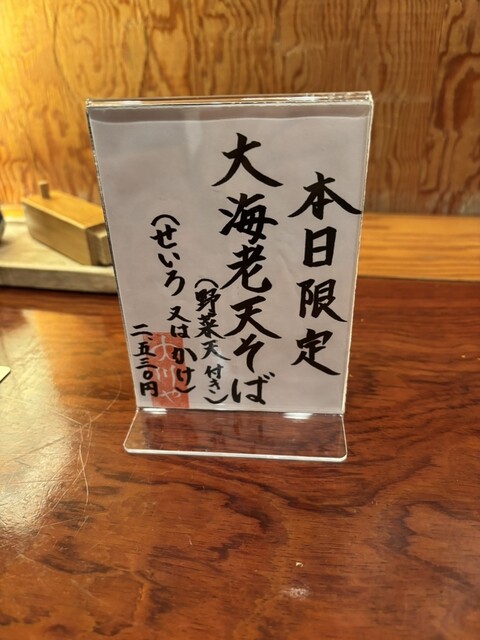 本日限定
大海老天そば
(野菜天付き)
(せいろ又はかけ)
二、五三〇円
大川や